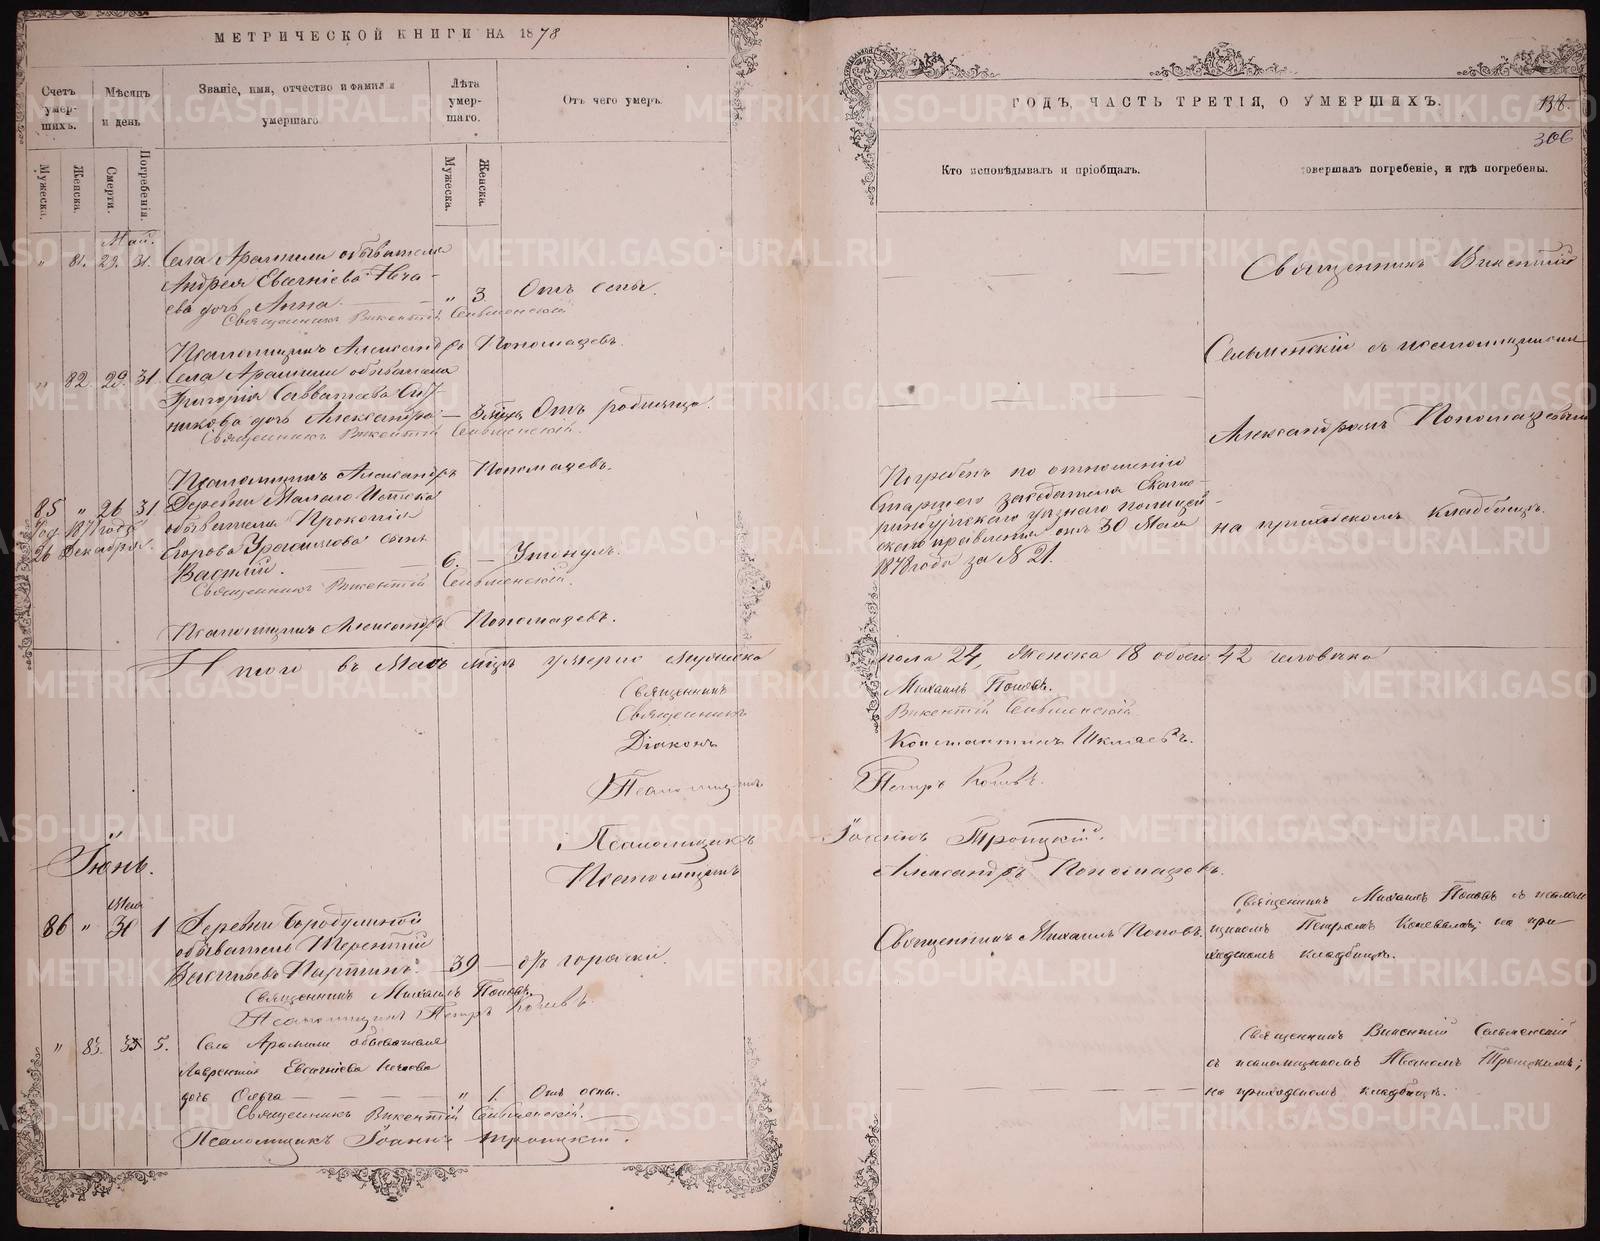 МЕТРИЧЕСКОЙ КНИГИ НА 1878
Счетъ умер- шихъ.
Мѣсяцъ и день
Званіе, имя, отчество и фамилія умершаго
Лѣта умер- шаго.
Отъ чего умеръ.
Мужеска.
Женска.
Смерти.
Погребенія.
Мужеска.
Женска.
Май.
" 81. 29. 31. Села Арамили обыватель
Андрея Евсигніева Неча-
ева дочь Анна " 3. Отъ оспы.
Священникъ Викентій Сельменскій
Псаломщикъ Александръ Пономаревъ.
" 82 29. 31. Села Арамили обывателя
Григорія Савватѣева
никова дочь Александра Отъ родимца.
Священникъ Викентій Сельменскій
Псаломщикъ Александръ Пономаревъ.
85 " 26 31 Деревни Малаго Истока
год. 1877 года обывателя Прокопія
26 Декабря Егорова Урасимова сынъ
Василій. 6. Утонулъ.
Священникъ Викентій Сельменскій.
Псаломщикъ Александръ Пономаревъ.
Итого въ Маѣ мѣсяцѣ умерло мужеска
Священникъ
Священникъ
Діаконъ
Псаломщикъ
Псаломщикъ
Псаломщикъ
Іюнь.
Мая
86 " 31 1 Деревни Бородулиной
обыватель Терентій
Васильевъ Паршинъ. 39 отъ горячки.
Священникъ Михаилъ Поповъ.
Псаломщикъ Петръ Коневъ.
" 83. 5. Села Арамили обывателя
Лаврентія Евсигніева Нечаева
дочь Ольга " 1. Отъ оспы.
Священникъ Викентій Сельменскій.
Псаломщикъ Іоаннъ Троицкій.
ГОДЪ, ЧАСТЬ ТРЕТІЯ, О УМЕРШИХЪ.
138.
306
Кто исповѣдывалъ и пріобщалъ.
совершалъ погребеніе, и гдѣ погребены.
Священникъ Викентій
Сельменскій съ псаломщикомъ
Александромъ Пономаревымъ
на приходскомъ кладбищѣ.
Погребенъ по отношенію
старшаго засѣдателя Екате-
ринбургскаго уѣзднаго полицей-
скаго правленія отъ 30 Мая
1878 года за № 21.
пола 24, Женска 18 обоего 42 человѣка
Михаилъ Поповъ.
Викентій Сельменскій
Константинъ Шкляевъ.
Петръ Коневъ.
Іоаннъ Троицкій.
Александръ Пономаревъ.
Священникъ Михаилъ Поповъ.
Священникъ Михаилъ Поповъ съ псалом
щикомъ Петромъ Коневымъ; на при-
ходскомъ кладбищѣ.
Священникъ Викентій Сельменскій
съ псаломщикомъ Иваномъ Троицкимъ;
на приходскомъ кладбищѣ.
METRIKI.GASO-URAL.RU